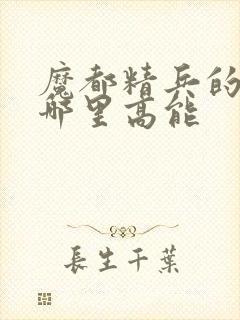 魔都精兵的
那里高能
長生千葉